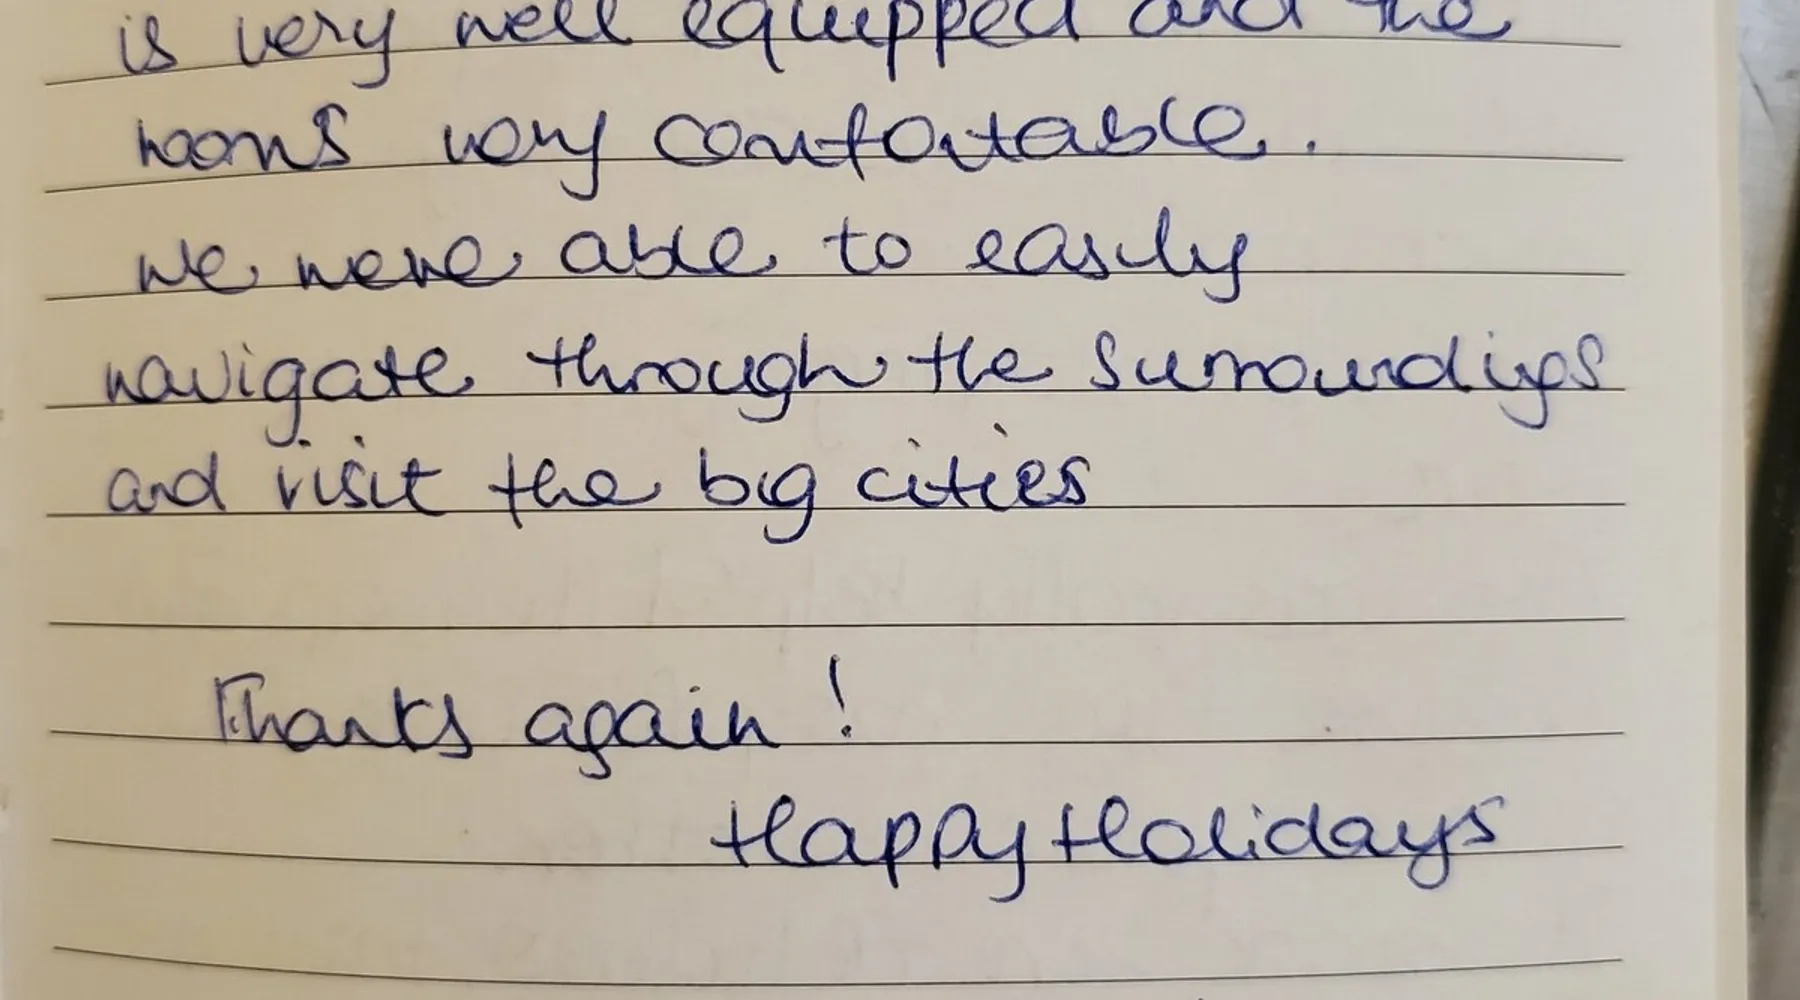 is very well equipped and the
rooms very comfortable.
we were able to easily
navigate through the surroundigs
and visit the big cities
Thanks again!
Happy Holidays